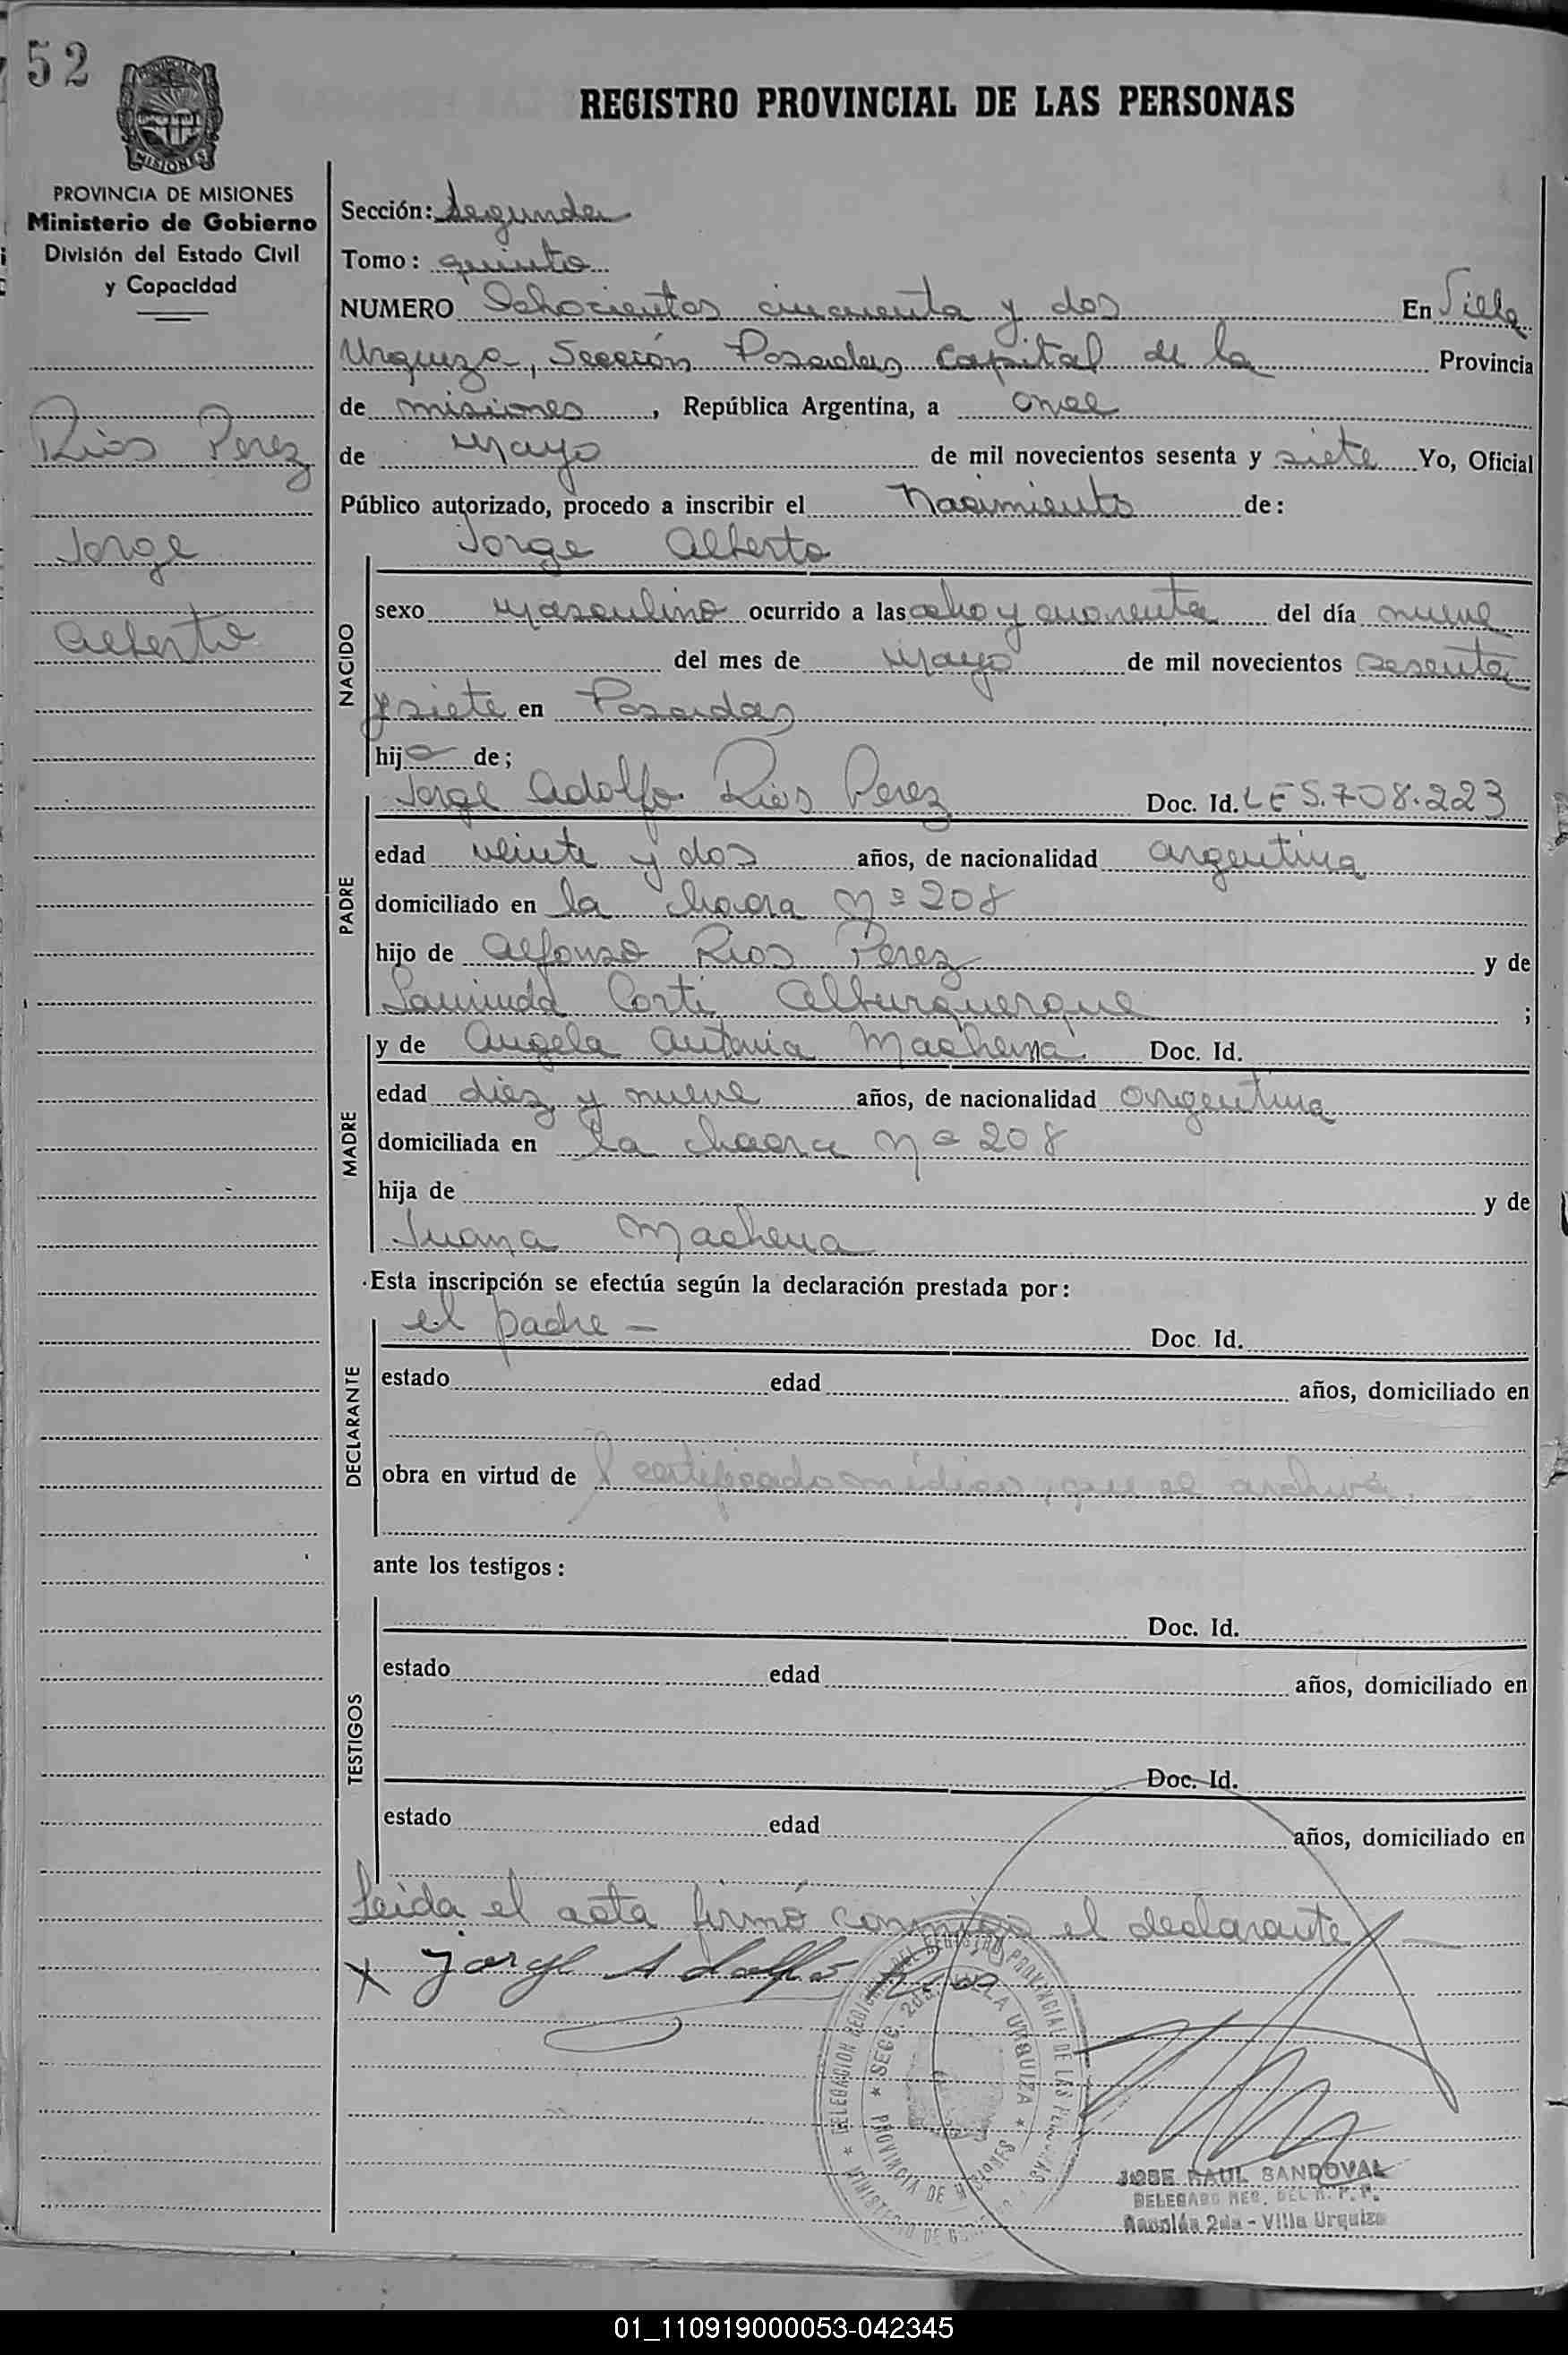 52
PROVINCIA DE MISIONES
Ministerio de Gobierno
División del Estado Civil
y Capacidad
Rios Perez
Jorge
Alberto
REGISTRO PROVINCIAL DE LAS PERSONAS
Sección: Segunda
Tomo: quinto
NUMERO Ochocientos cincuenta y dos En Villa
Urquiza, Sección Posadas Capital de la Provincia
de misiones, República Argentina, a once
de Mayo de mil novecientos sesenta y siete Yo, Oficial
Público autorizado, procedo a inscribir el Nacimiento de:
Jorge Alberto
NACIDO
sexo Masculino ocurrido a las ocho y cuarenta del día nueve
del mes de Mayo de mil novecientos sesenta
y siete en Posadas
hijo de;
PADRE
Jorge Adolfo Rios Perez Doc. Id. LE 5.708.223
edad veinte y dos años, de nacionalidad argentina
domiciliado en la chacra Nº 208
hijo de Alfonso Rios Perez y de
Corti Alburquerque ;
MADRE
y de Angela Antonia Doc. Id.
edad diez y nueve años, de nacionalidad argentina
domiciliada en la chacra Nº 208
hija de y de
Juana
Esta inscripción se efectúa según la declaración prestada por:
DECLARANTE
el padre — Doc. Id.
estado edad años, domiciliado en
obra en virtud de certificado médico, que se archiva.
ante los testigos:
TESTIGOS
Doc. Id.
estado edad años, domiciliado en
Doc. Id.
estado edad años, domiciliado en
Leida el acta firmó conmigo el declarante —
x Jorge Adolfo Rios
DELEGACION DEL REGISTRO PROVINCIAL DE LAS PERSONAS
SECC. 2da. VILLA URQUIZA
PROVINCIA DE MISIONES
MINISTERIO DE
JOSE RAUL SANDOVAL
DELEGADO REG. DEL R. P. P.
Sección 2da - Villa Urquiza
01_110919000053-042345